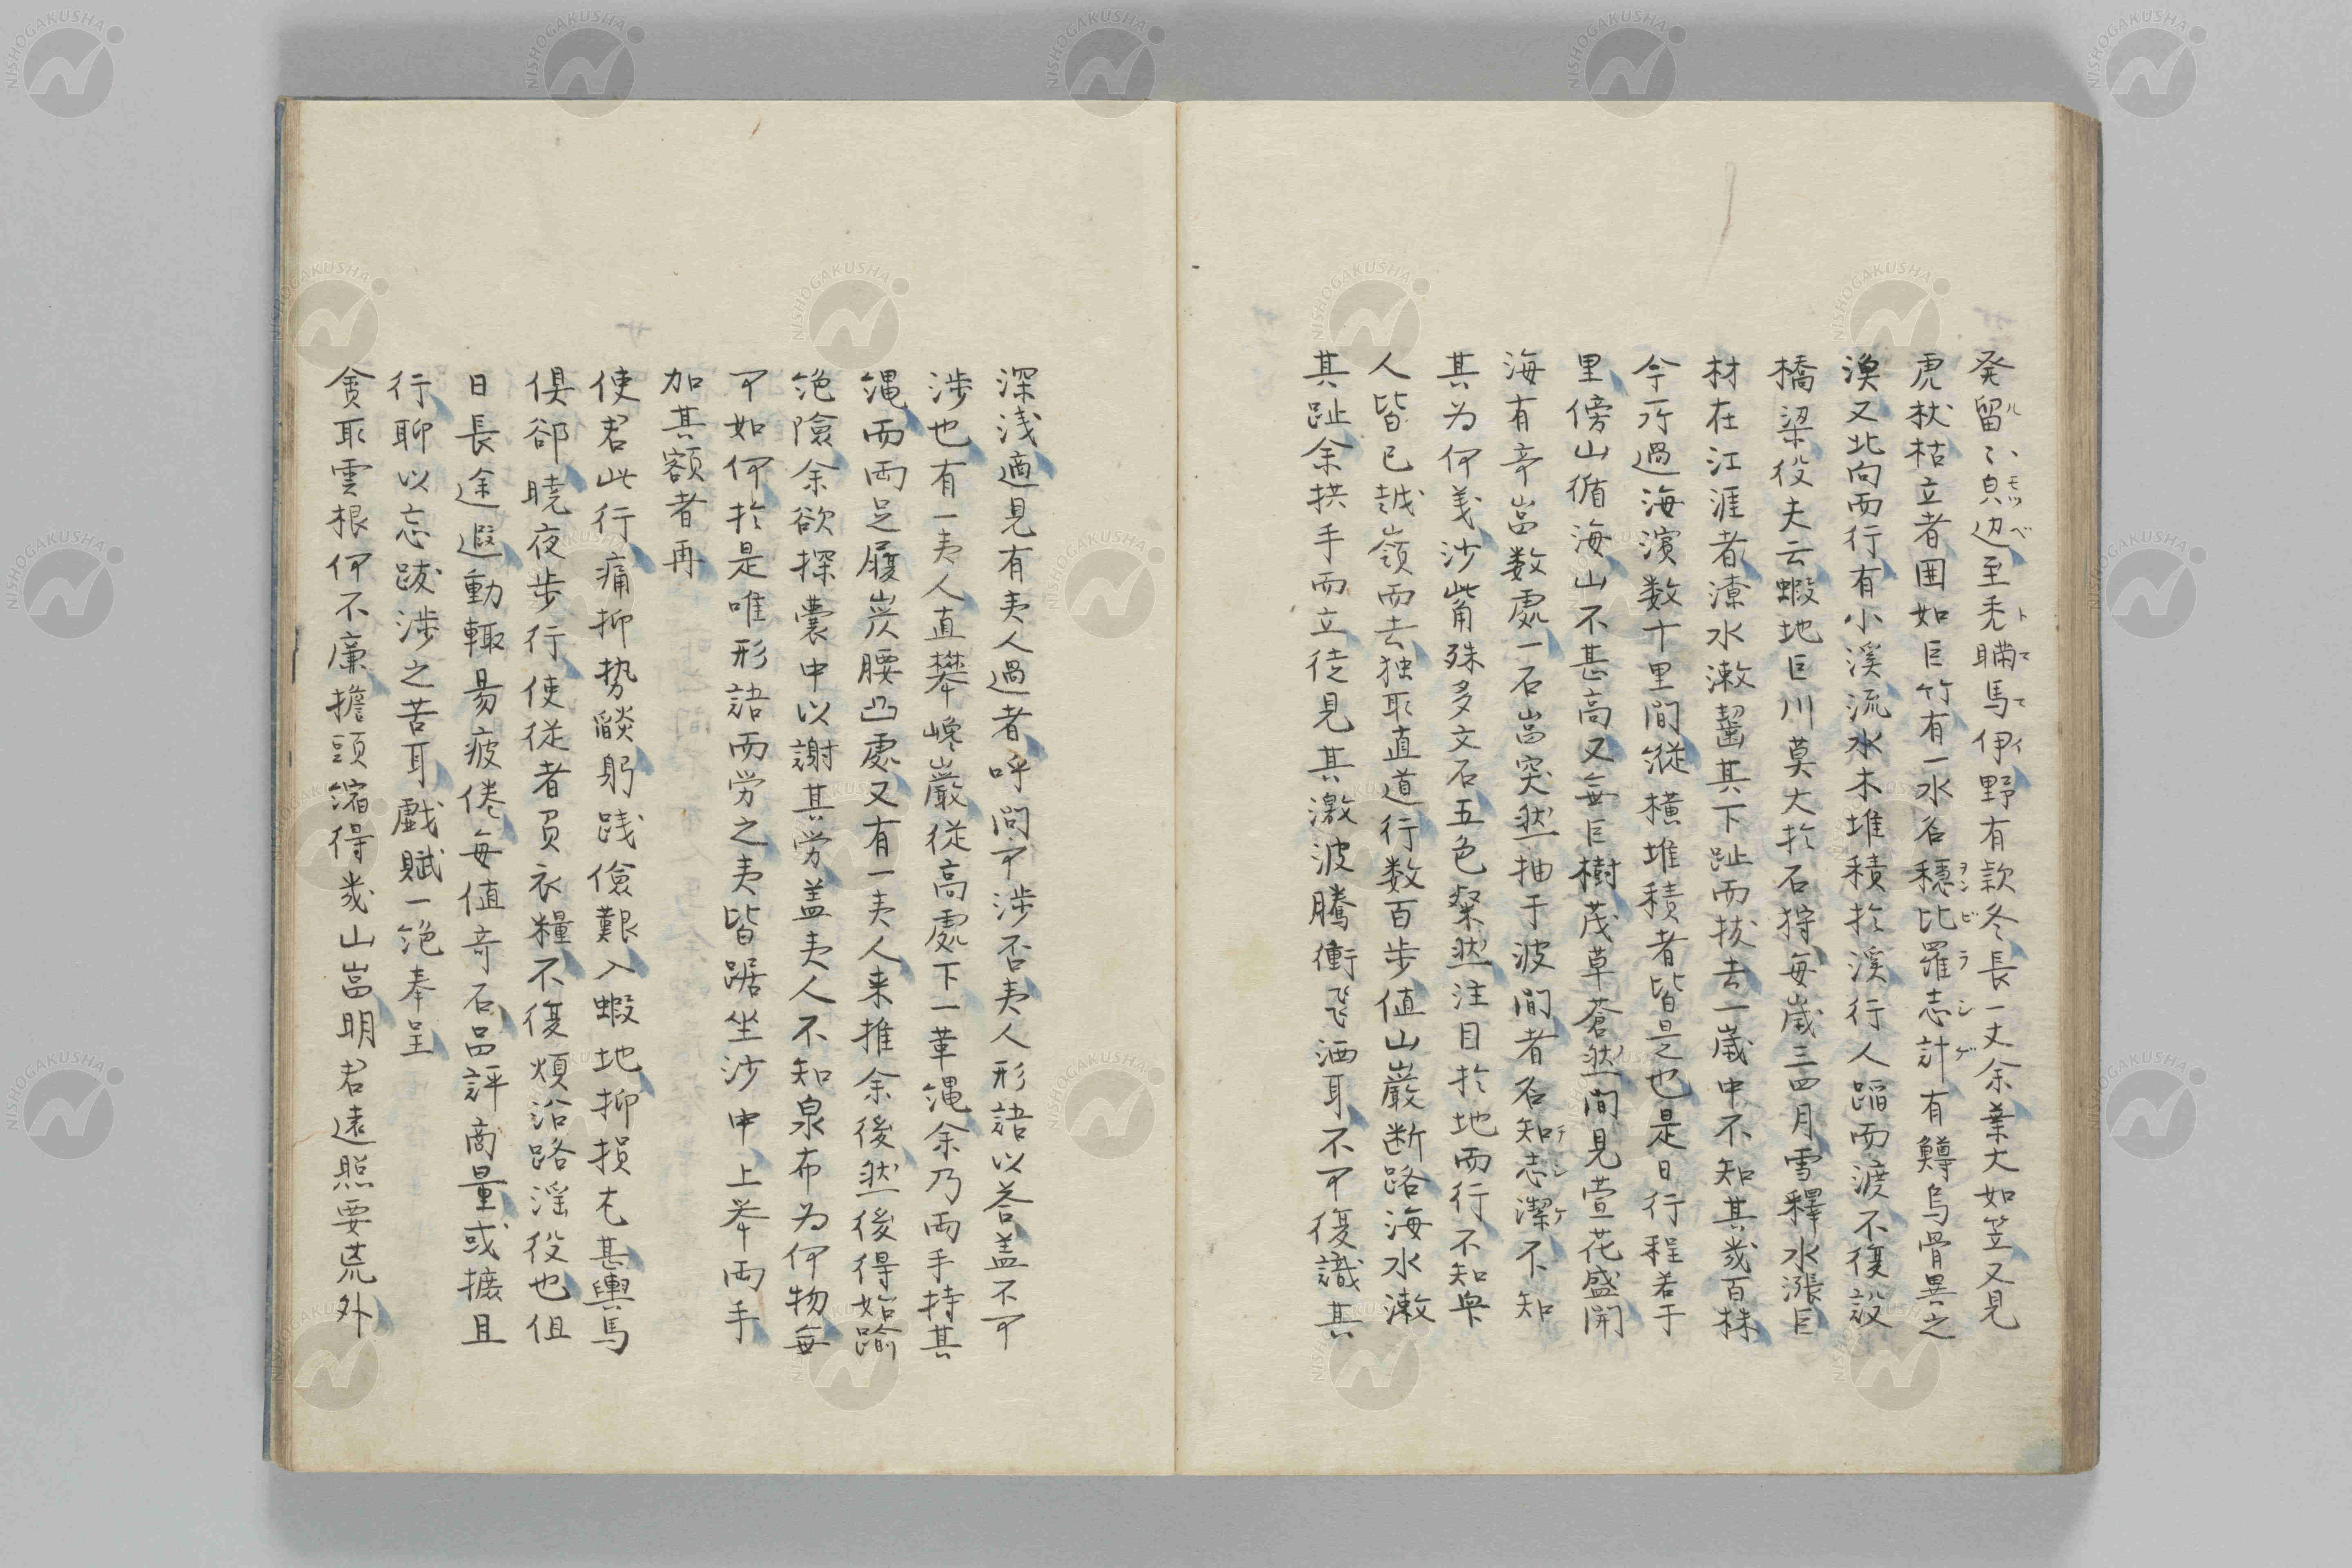 発留〻貝辺至禿瞞馬伊野有款冬長一丈余葉大如笠又見
ルヽモツベ トマヽイ
虎杖枯立者囲如巨竹有一水名穏比羅志計有鱒烏骨異之
ヲンビラシゲ
渙又北向而行有小溪流水木堆積於溪行人蹈而渡不復設
橋梁役夫云蝦地巨川莫大於石狩毎歳三四月雪釋水漲巨
材在江涯者潦水漱齧其下趾而拔去一歳中不知其幾百株
今所過海濱数十里間縱横堆積者皆是之也是日行程若于
里傍山循海山不甚高又無巨樹茂草蒼然間見萱花盛開
海有奇嵓数處一石嵓突然抽于波間者名知志潔不知
チシケ
其为何義沙觜殊多文石五色粲然注目於地而行不知与
人皆已越嶺而去独取直道行数百歩値山巌断路海水漱
其趾余拱手而立徒見其激波騰衝飞洒耳不可復識其
深浅適見有夷人過者呼問可渉否夷人形語以答盖不可
渉也有一夷人直攀巉巌従高處下一葦縄余乃両手持其
縄而両足履炭腰凸處又有一夷人来推余後然後得始踰
絶險余欲探嚢中以謝其労盖夷人不知泉布为何物無
可如何於是唯形語而労之夷皆踞坐沙中上挙両手
加其額者再
使君此行痛抑势燄躬践儉艱入蝦地抑損尤甚輿馬
倶卻曉夜歩行使従者負衣糧不復煩沿路滛役也但
日長途遐動輙易疲倦毎値奇石品評商量或摭且
行聊以忘跋渉之苦耳戯賦一絶奉呈
貪取雲根何不廉擔頭縮得幾山嵓明君遠照要荒外